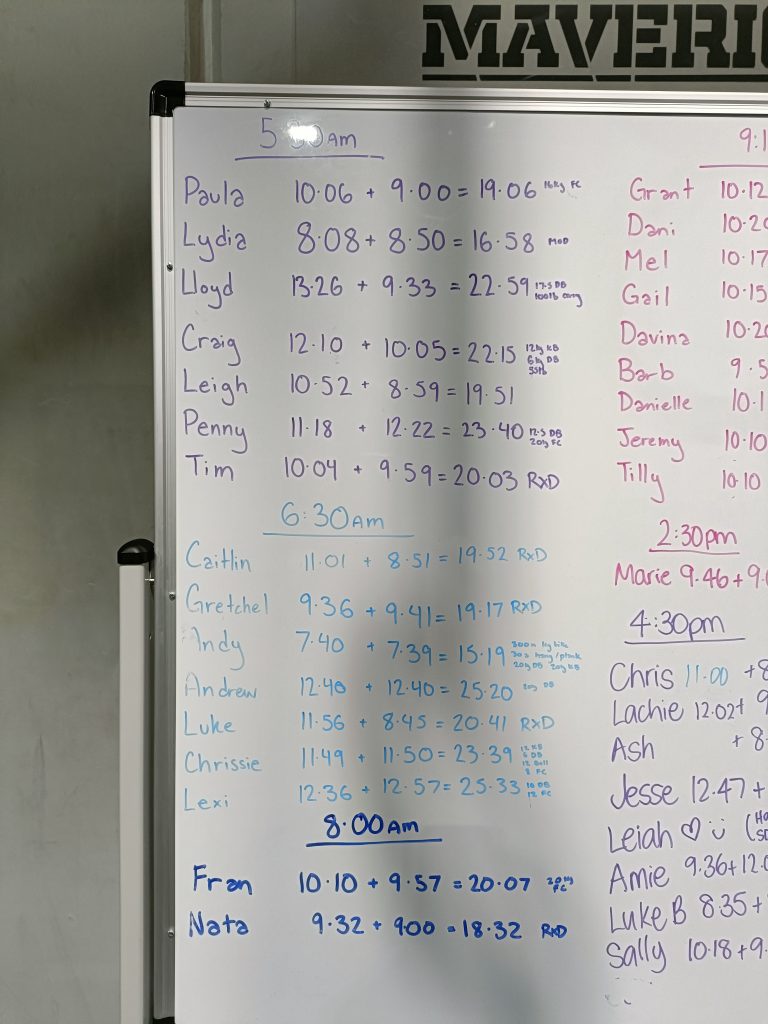 MAVERI
5 am
Paula 10.06 + 9.00 = 19.06 16kg FC
Lydia 8.08 + 8.50 = 16.58 MOD
Lloyd 13.26 + 9.33 = 22.59 17.5 DB
100lb
Craig 12.10 + 10.05 = 22.15 12kg KB
6kg DB
Leigh 10.52 + 8.59 = 19.51
Penny 11.18 + 12.22 = 23.40 12.5 DB
20kg FC
Tim 10.04 + 9.59 = 20.03 RxD
6:30am
Caitlin 11.01 + 8.51 = 19.52 RxD
Gretchel 9.36 + 9.41 = 19.17 RxD
Andy 7.40 + 7.39 = 15.19
20kg DB 20kg KB
Andrew 12.40 + 12.40 = 25.20 DB
Luke 11.56 + 8.45 = 20.41 RxD
Chrissie 11.49 + 11.50 = 23.39 12 KB
6 DB
12 Ball
8 FC
Lexi 12.36 + 12.57 = 25.33 10 DB
12 FC
8.00am
Fran 10.10 + 9.57 = 20.07 20kg
FC
Nata 9.32 + 900 = 18.32 RxD
9:1
Grant 10.12
Dani 10.20
Mel 10.17
Gail 10.15
Davina 10.20
Barb 9.5
Danielle 10.1
Jeremy 10.10
Tilly 10.10
2:30pm
Marie 9.46 + 9.
4:30pm
Chris 11.00 + 8
Lachie 12.02 + 9
Ash + 8.
Jesse 12.47 +
Leiah ♡ ü (
Amie 9.36 + 12.0
Luke B 8.35 +
Sally 10.18 + 9.